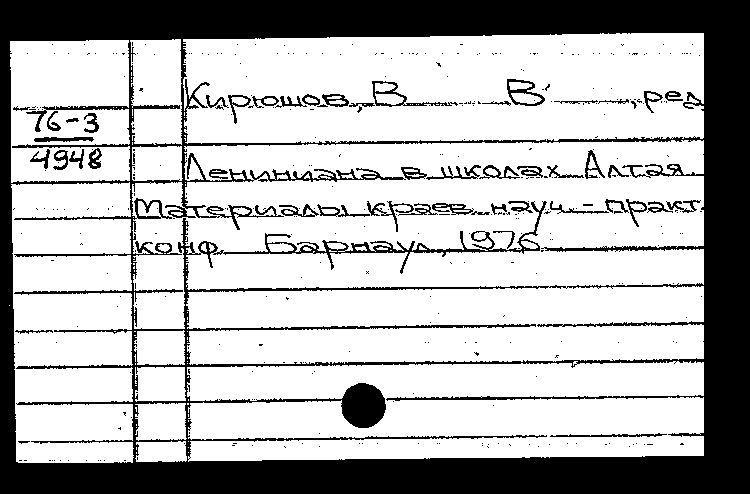 Кирюшов, В В , ред
76-3
4948
Лениниана в школах Алтая.
Материалы краев. науч. - практ.
конф. Барнаул, 1976